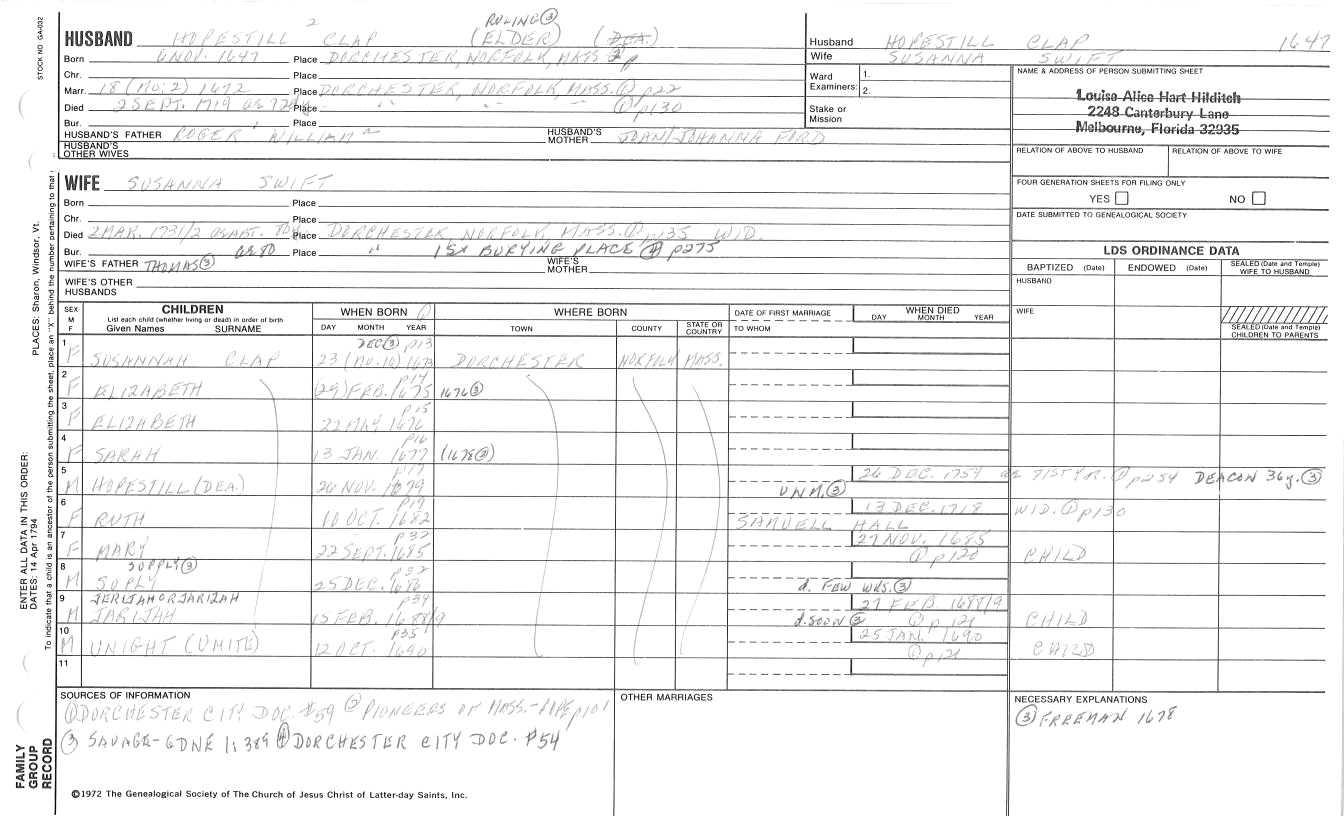 STOCK NO. GA-032
PLACES: Sharon, Windsor, Vt.
ENTER ALL DATA IN THIS ORDER:
DATES: 14 Apr 1794
To indicate that a child is an ancestor of the person submitting the sheet, place an "X" behind the number pertaining to that
FAMILY GROUP RECORD
RULING ③
HUSBAND HOPESTILL 2 CLAP (ELDER) (DEA.)
Born 6 NOV. 1647 Place DORCHESTER, NORFOLK, MASS
Chr. Place
Marr. 18 (MO; 2) 1672 Place DORCHESTER, NORFOLK, MASS. ① p22
Died 2 SEPT. 1719 Place " " ① p130
Bur. Place
HUSBAND'S FATHER ROGER 1 WILLIAM HUSBAND'S MOTHER JOAN/JOHANNA FORD
HUSBAND'S OTHER WIVES
Husband HOPESTILL CLAP 1647
Wife SUSANNA SWIFT
Ward Examiners: 1.
2.
Stake or Mission
NAME & ADDRESS OF PERSON SUBMITTING SHEET
Louise Alice Hart Hilditch
2248 Canterbury Lane
Melbourne, Florida 32935
RELATION OF ABOVE TO HUSBAND RELATION OF ABOVE TO WIFE
FOUR GENERATION SHEETS FOR FILING ONLY
YES NO
DATE SUBMITTED TO GENEALOGICAL SOCIETY
WIFE SUSANNA SWIFT
Born Place
Chr. Place
Died 2 MAR. 1731/2 Place DORCHESTER, NORFOLK, MASS. ① p135 WID.
Bur. Place " 1st BURYING PLACE ④ p275
WIFE'S FATHER THOMAS ③ WIFE'S MOTHER
WIFE'S OTHER HUSBANDS
LDS ORDINANCE DATA
BAPTIZED (Date) ENDOWED (Date) SEALED (Date and Temple) WIFE TO HUSBAND
HUSBAND
WIFE
SEALED (Date and Temple) CHILDREN TO PARENTS
SEX M F
CHILDREN
List each child (whether living or dead) in order of birth
Given Names SURNAME
WHEN BORN ①
DAY MONTH YEAR
WHERE BORN
TOWN COUNTY STATE OR COUNTRY
DATE OF FIRST MARRIAGE
TO WHOM
WHEN DIED
DAY MONTH YEAR
DEC ③ p13
1 F SUSANNAH CLAP 23 (MO. 10) 1673 DORCHESTER NORFOLK MASS.
p14
2 F ELIZABETH (29) FEB. 1675 1676 ③
p15
3 F ELIZABETH 22 MAY 1676
p16
4 F SARAH 13 JAN. 1677 (1678 ③)
p17
5 M HOPESTILL (DEA.) 26 NOV. 1679 UNM. ③ 26 DEC. 1759 71ST YR. ① p254 DEACON 36y. ③
p19
6 F RUTH 10 OCT. 1682 SAMUELL HALL 13 DEC. 1718 WID. ① p130
p32
7 F MARY 22 SEPT. 1685 27 NOV. 1685 ① p120 CHILD
SUPPLY ③ p32
8 M SUPLY 25 DEC. 1686 d. FEW WKS. ③
9 JERIJAH OR JARIZAH p34
M JARIJAH 15 FEB. 1688/9 d. SOON ③ 27 FEB 1688/9 ① p 121 CHILD
p35
10 M UNIGHT (UNITE) 12 OCT. 1690 25 JAN. 1690 ① p121 CHILD
11
SOURCES OF INFORMATION
① DORCHESTER CITY DOC. #59 ② PIONEERS OF MASS. - POPE p101
③ SAVAGE - GDNE 1: 389 ④ DORCHESTER CITY DOC. #54
OTHER MARRIAGES
NECESSARY EXPLANATIONS
③ FREEMAN 1678
©1972 The Genealogical Society of The Church of Jesus Christ of Latter-day Saints, Inc.